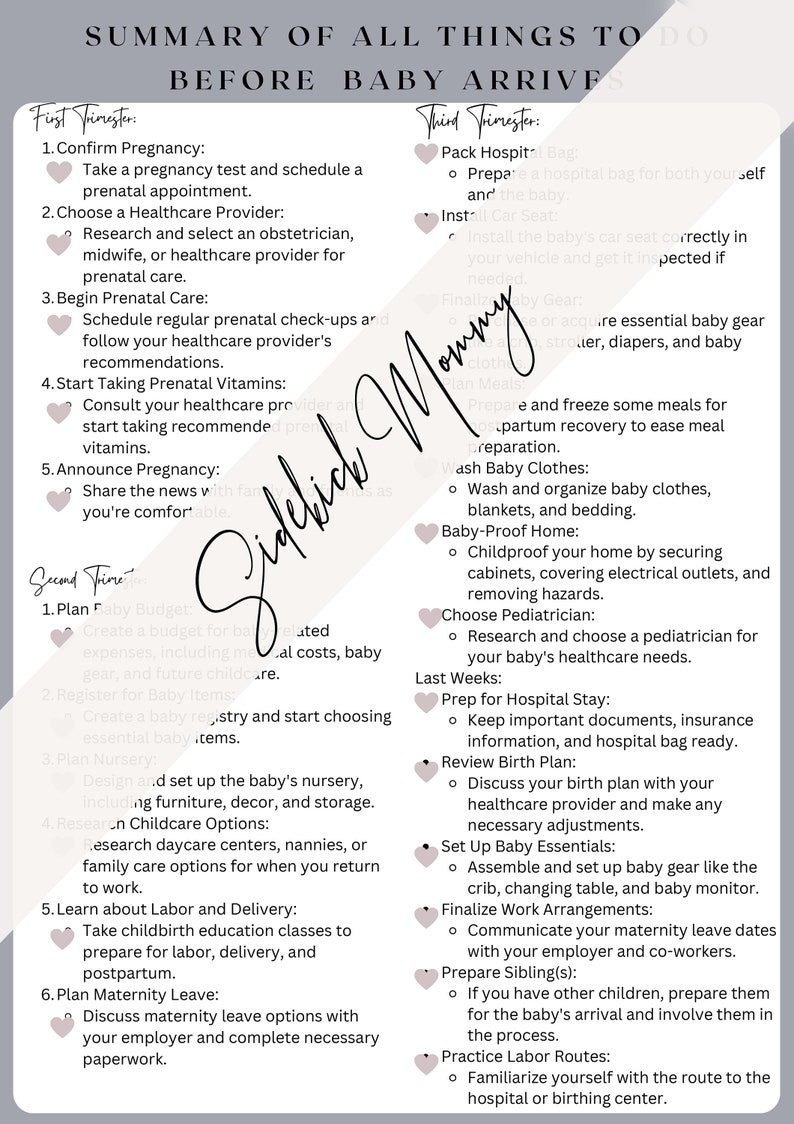 SUMMARY OF ALL THINGS TO DO
BEFORE BABY ARRIVES
First Trimester:
1. Confirm Pregnancy:
Take a pregnancy test and schedule a
prenatal appointment.
2. Choose a Healthcare Provider:
Research and select an obstetrician,
midwife, or healthcare provider for
prenatal care.
3. Begin Prenatal Care:
Schedule regular prenatal check-ups and
follow your healthcare provider's
recommendations.
4. Start Taking Prenatal Vitamins:
Consult your healthcare provider and
start taking recommended prenatal
vitamins.
5. Announce Pregnancy:
Share the news with family and friends as
you're comfortable.
Second Trimester:
1. Plan Baby Budget:
Create a budget for baby-related
expenses, including medical costs, baby
gear, and future childcare.
2. Register for Baby Items:
Create a baby registry and start choosing
essential baby items.
3. Plan Nursery:
Design and set up the baby's nursery,
including furniture, decor, and storage.
4. Research Childcare Options:
Research daycare centers, nannies, or
family care options for when you return
to work.
5. Learn about Labor and Delivery:
Take childbirth education classes to
prepare for labor, delivery, and
postpartum.
6. Plan Maternity Leave:
Discuss maternity leave options with
your employer and complete necessary
paperwork.
Third Trimester:
Pack Hospital Bag:
Prepare a hospital bag for both yourself
and the baby.
Install Car Seat:
Install the baby's car seat correctly in
your vehicle and get it inspected if
needed.
Finalize Baby Gear:
Purchase or acquire essential baby gear
like a crib, stroller, diapers, and baby
clothes.
Plan Meals:
Prepare and freeze some meals for
postpartum recovery to ease meal
preparation.
Wash Baby Clothes:
Wash and organize baby clothes,
blankets, and bedding.
Baby-Proof Home:
Childproof your home by securing
cabinets, covering electrical outlets, and
removing hazards.
Choose Pediatrician:
Research and choose a pediatrician for
your baby's healthcare needs.
Last Weeks:
Prep for Hospital Stay:
Keep important documents, insurance
information, and hospital bag ready.
Review Birth Plan:
Discuss your birth plan with your
healthcare provider and make any
necessary adjustments.
Set Up Baby Essentials:
Assemble and set up baby gear like the
crib, changing table, and baby monitor.
Finalize Work Arrangements:
Communicate your maternity leave dates
with your employer and co-workers.
Prepare Sibling(s):
If you have other children, prepare them
for the baby's arrival and involve them in
the process.
Practice Labor Routes:
Familiarize yourself with the route to the
hospital or birthing center.
Sidekick Mommy